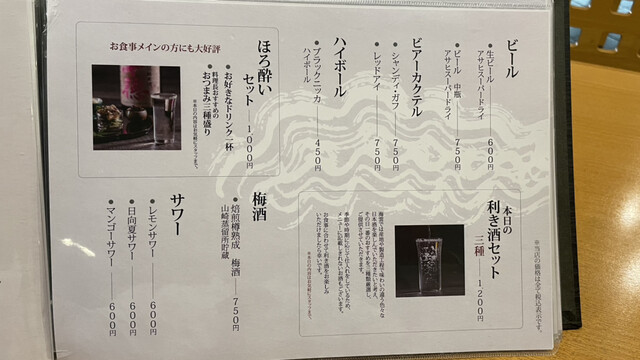 ビール
●生ビール アサヒスーパードライ 600円
●ビール 中瓶 アサヒスーパードライ 750円
ビアーカクテル
●シャンディ・ガフ 750円
●レッドアイ 750円
ハイボール
●ブラックニッカ ハイボール 450円
お食事メインの方にも大好評
ほろ酔いセット 1,000円
●お好きなドリンク一杯
●料理長おすすめの おつまみ三種盛り
※当店の価格は全て税込表示です。
本日の
利き酒セット
三種 1,200円
お食事に合わせて利き酒をお楽しみ
いただけましたら幸いです。
梅酒
●焙煎樽熟成 梅酒 750円
山崎蒸留所貯蔵
サワー
●レモンサワー 600円
●日向夏サワー 600円
●マンゴーサワー 600円